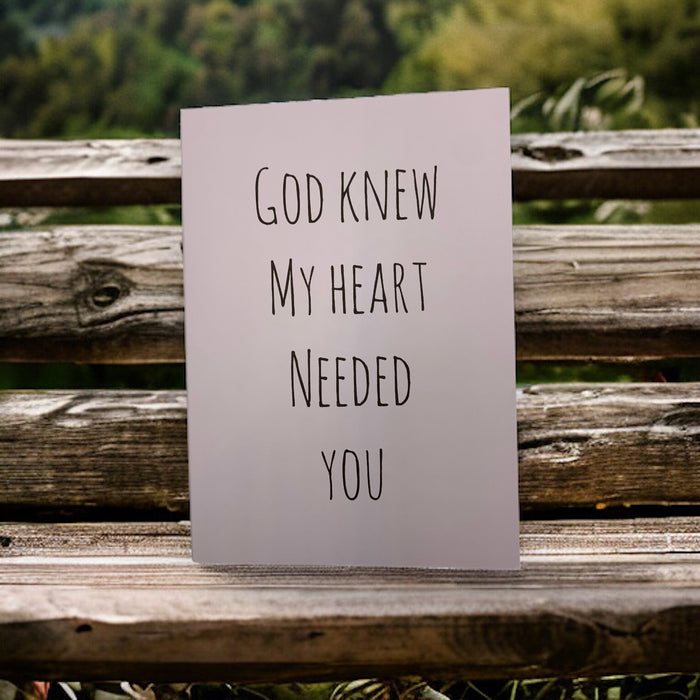 God knew
My heart
Needed
you